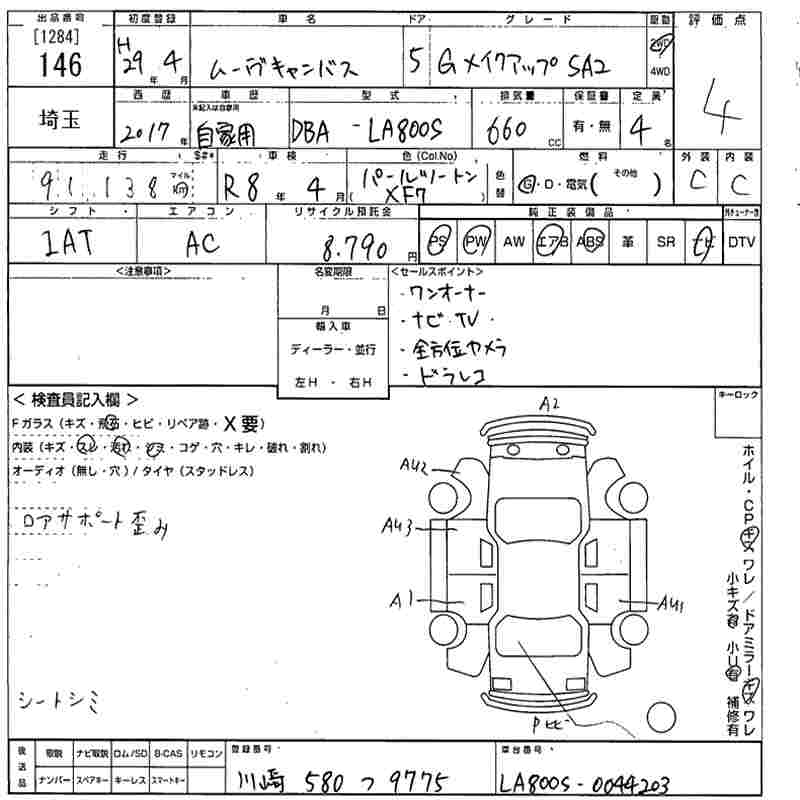 出品番号 初度登録 車名 ドア グレード 駆動 評価点
[1284]
146
H 29 年 4 月 ムーヴキャンバス 5 G メイクアップ SA2 2WD 4WD 4
埼玉 西暦 車歴 型式 排気量 保証書 定員
未記入は自家用
2017 年 自家用 DBA - LA800S 660 CC 有・無 4 名
走行 S#* 車検 色(Col.No) 燃料 外装 内装
91,138 マイル Km R8 年 4 月 (パールツートン XF7) 色替 G・D・電気( その他 ) C C
シフト エアコン リサイクル預託金 純正装備品
IAT AC 8.790 円 PS PW AW エアB ABS 革 SR ナビ DTV
<注意事項> 名変期限 <セールスポイント>
月 日
・ワンオーナー
・ナビ.TV.
・全方位カメラ
・ドラレコ
輸入車
ディーラー・並行
左H・右H
<検査員記入欄> キーロック
Fガラス(キズ・飛石・ヒビ・リペア跡・X要)
内装(キズ・スレ・汚れ・シミ・コゲ・穴・キレ・破れ・割れ)
オーディオ(無し・穴)/タイヤ(スタッドレス)
ロアサポート歪み
シートシミ
A2
AU2
AU3
A1
AU1
Pヒビ
ホイル・CPキズワレ/ドアミラーキズワレ
小キズ有 小U有 補修有
後送品 取説 ナビ取説 ロム/SD B-CAS リモコン 登録番号 車台番号
ナンバー スペアキー キーレス スマートキー 川崎 580 つ 9775 LA800S-0044203